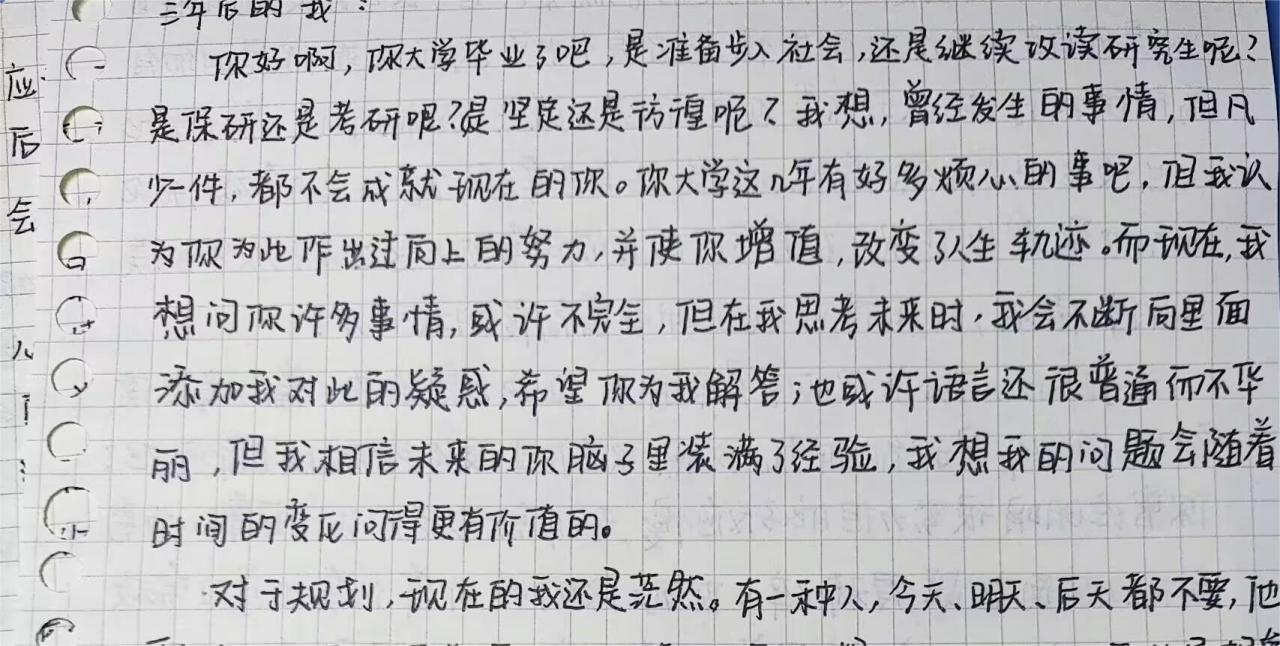 三年后的我：
你好啊，你大学毕业了吧，是准备步入社会，还是继续攻读研究生呢？
是保研还是考研呢？是坚定还是彷徨呢？我想，曾经发生的事情，但凡
少一件，都不会成就现在的你。你大学这几年有好多烦心的事吧，但我认
为你为此作出过向上的努力，并使你增值，改变了人生轨迹。而现在，我
想问你许多事情，或许不完全，但在我思考未来时，我会不断向里面
添加我对此的疑惑，希望你为我解答；也或许语言还很普通而不华
丽，但我相信未来的你脑子里装满了经验，我想我的问题会随着
时间的变化问得更有价值的。
对于规划，现在的我还是茫然。有一种人，今天、明天、后天都不要，他
应
后
会